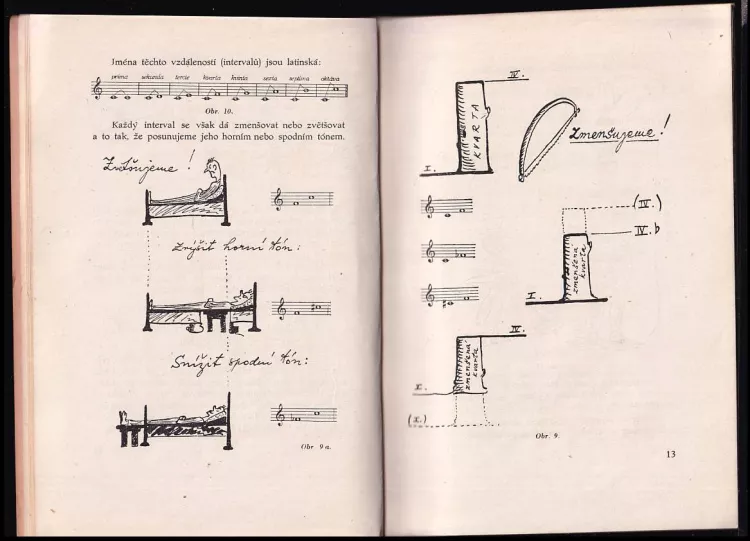 Jména těchto vzdáleností (intervalů) jsou latinská:
prima sekunda tercie kvarta kvinta sexta septima oktáva
Obr. 10.
Každý interval se však dá zmenšovat nebo zvětšovat
a to tak, že posunujeme jeho horním nebo spodním tónem.
Zvětšujeme!
Zvýšit horní tón:
Snížit spodní tón:
Obr 9a.
IV.
KVARTA
I.
Zmenšujeme!
(IV.)
IV.b
zmenšená
kvarta
I.
IV.
zmenšená
kvarta
I.
(I.)
Obr. 9
13